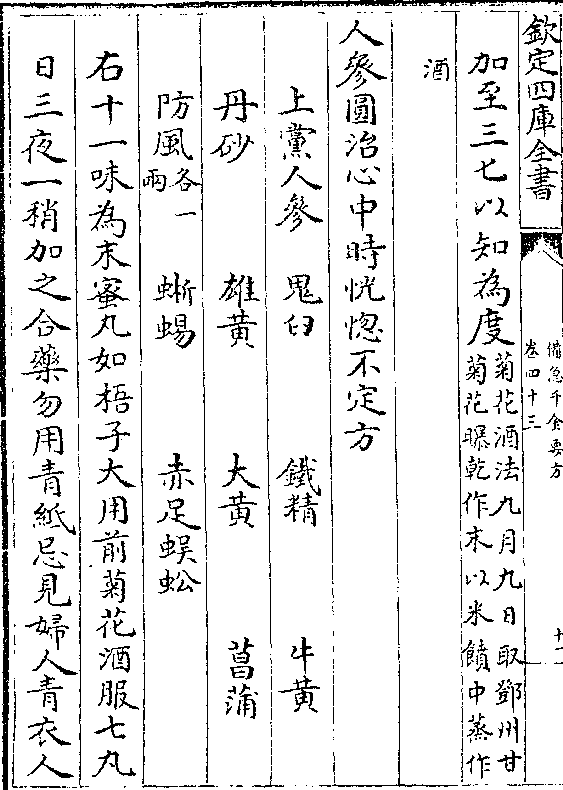 欽定四庫全書
備急千金要方
卷四十三
十一
加至三七以知為度菊花酒法九月九日取鄧州甘
菊花曝乾作末以米饋中蒸作
酒
人參圓治心中時恍惚不定方
上黨人參 鬼臼 鐵精 牛黃
丹砂 雄黃 大黃 菖蒲
防風各一兩 蜥蜴 赤足蜈蚣
右十一味為末蜜丸如梧子大用前菊花酒服七丸
日三夜一稍加之合藥勿用青紙忌見婦人青衣人